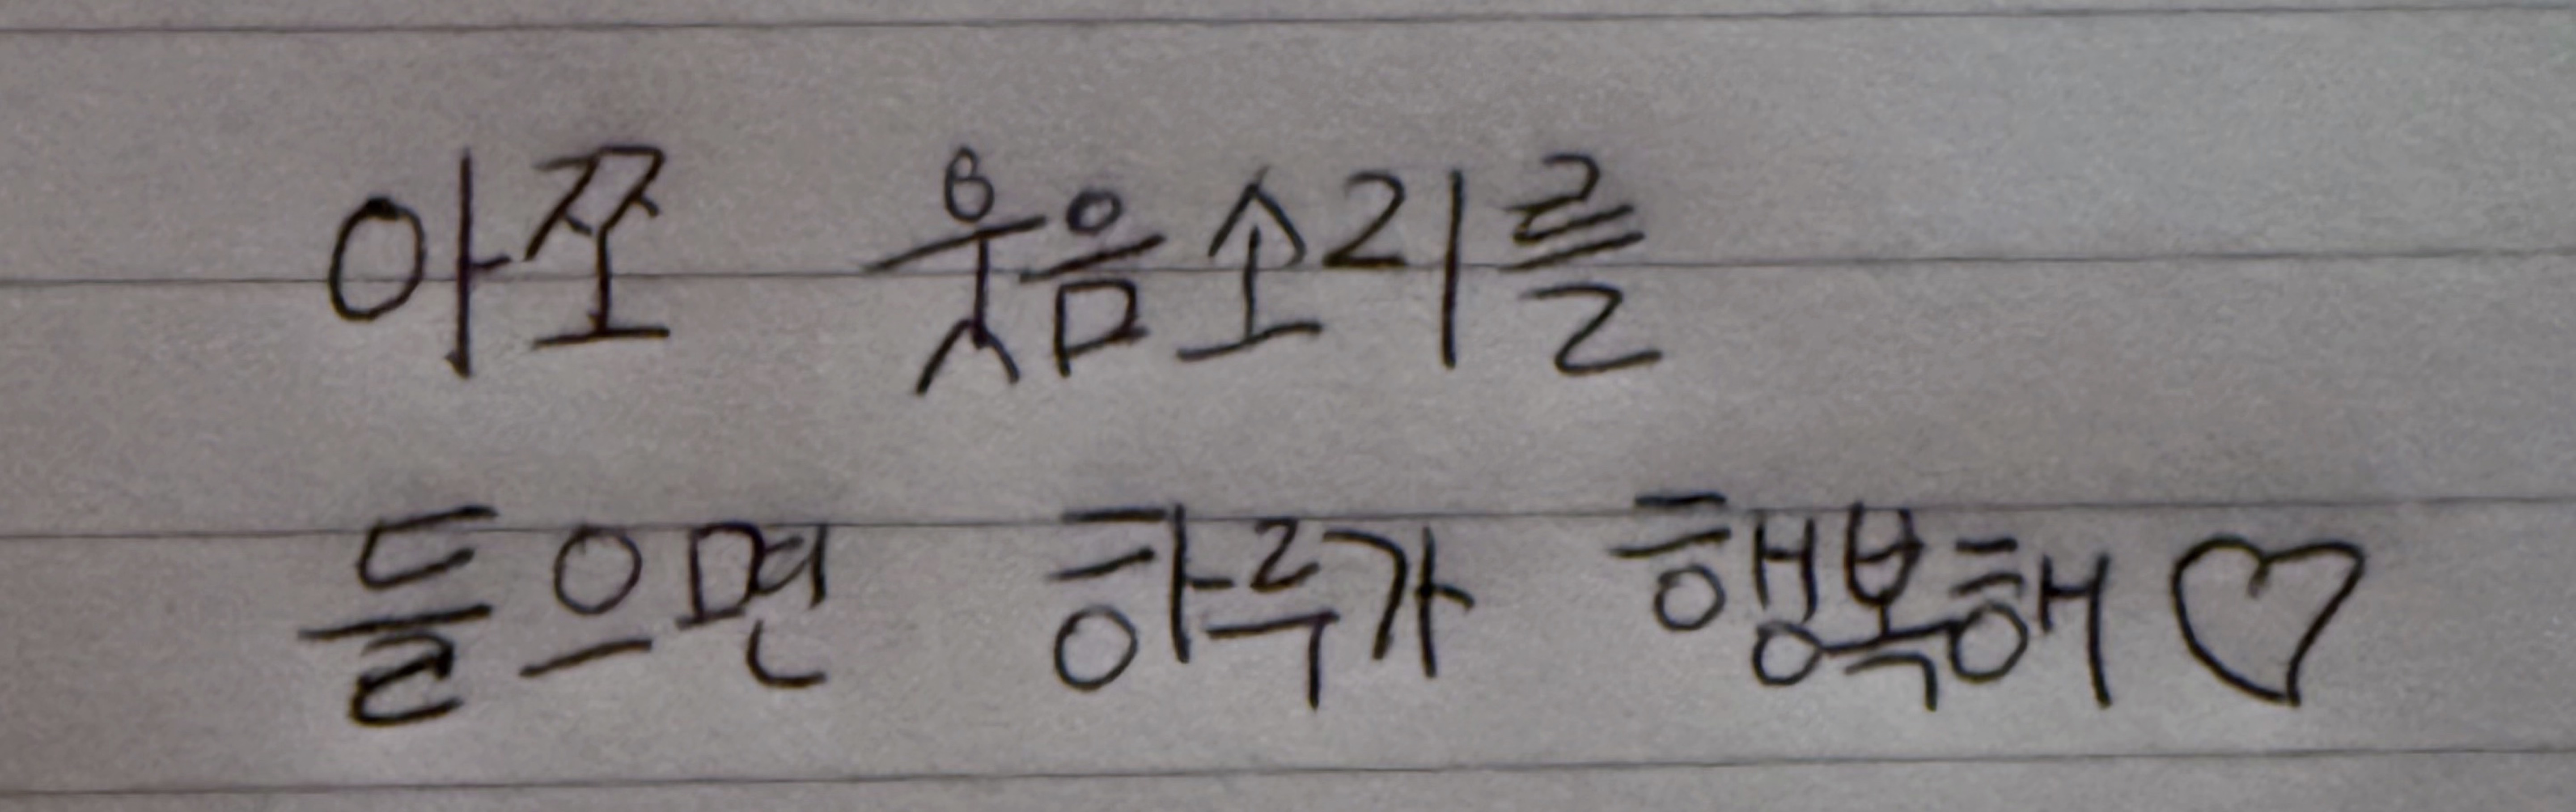 아쪼 웃음소리를
들으면 하루가 행복해♡